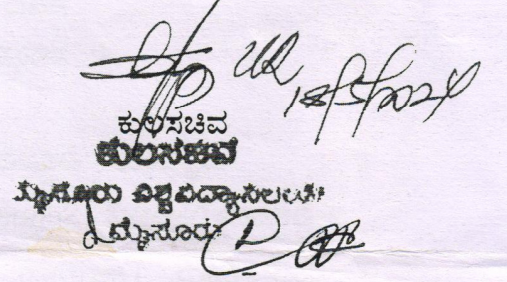 18/5/2024
ಕುಲಸಚಿವ
ಕುಲಸಚಿವ
ಮೈಸೂರು ವಿಶ್ವವಿದ್ಯಾನಿಲಯ
ಮೈಸೂರು